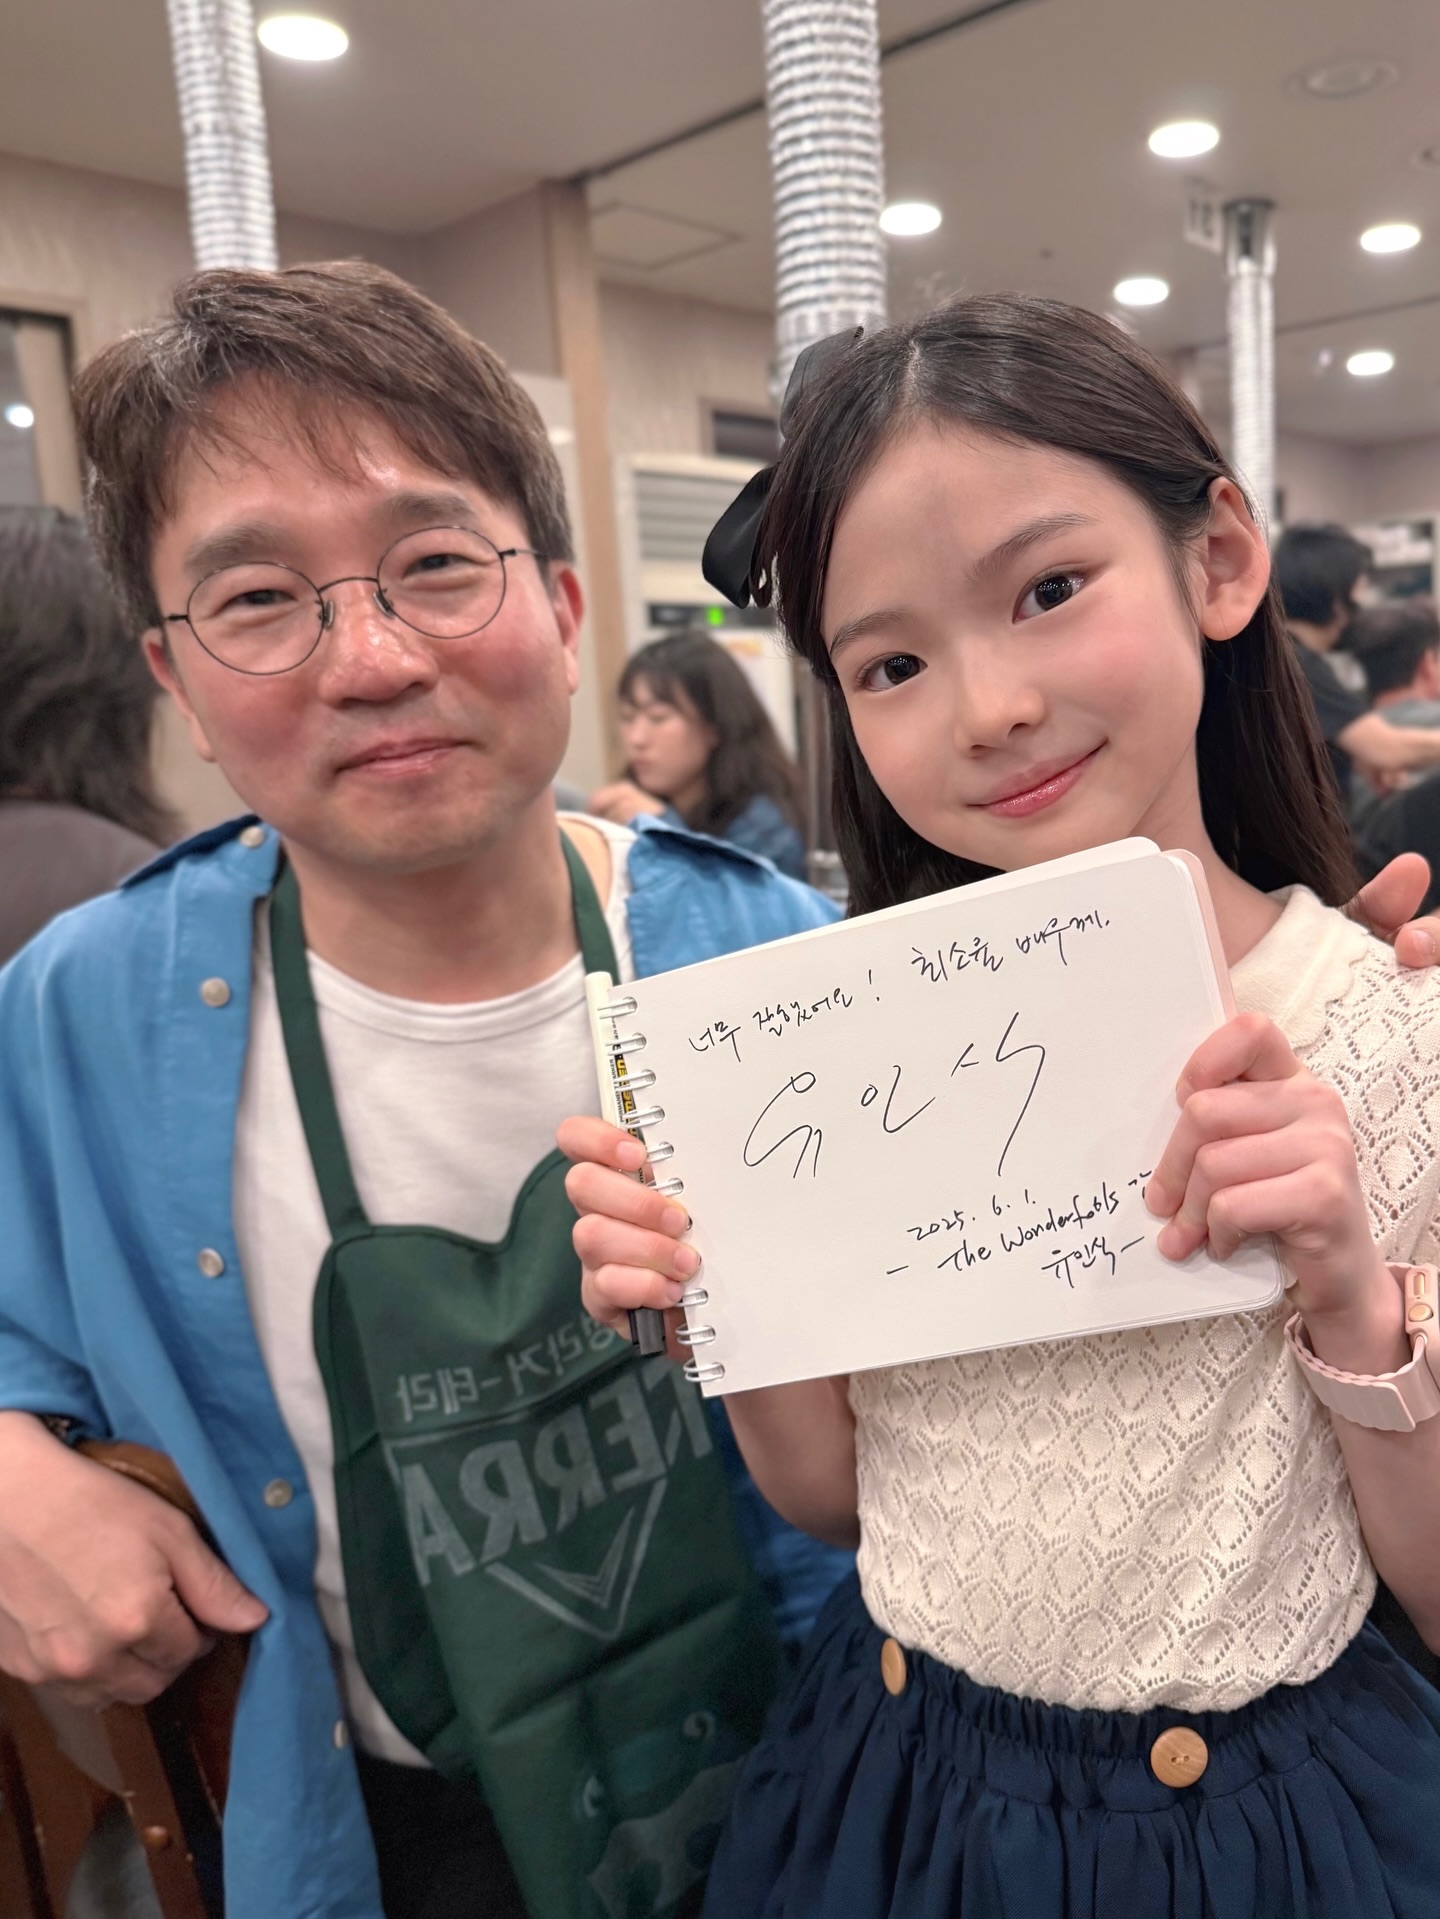 너무 잘했어요! 최소율 배우께.
유인식
2025. 6. 1.
- The Wonderfools
유인식 -
테라
TERRA